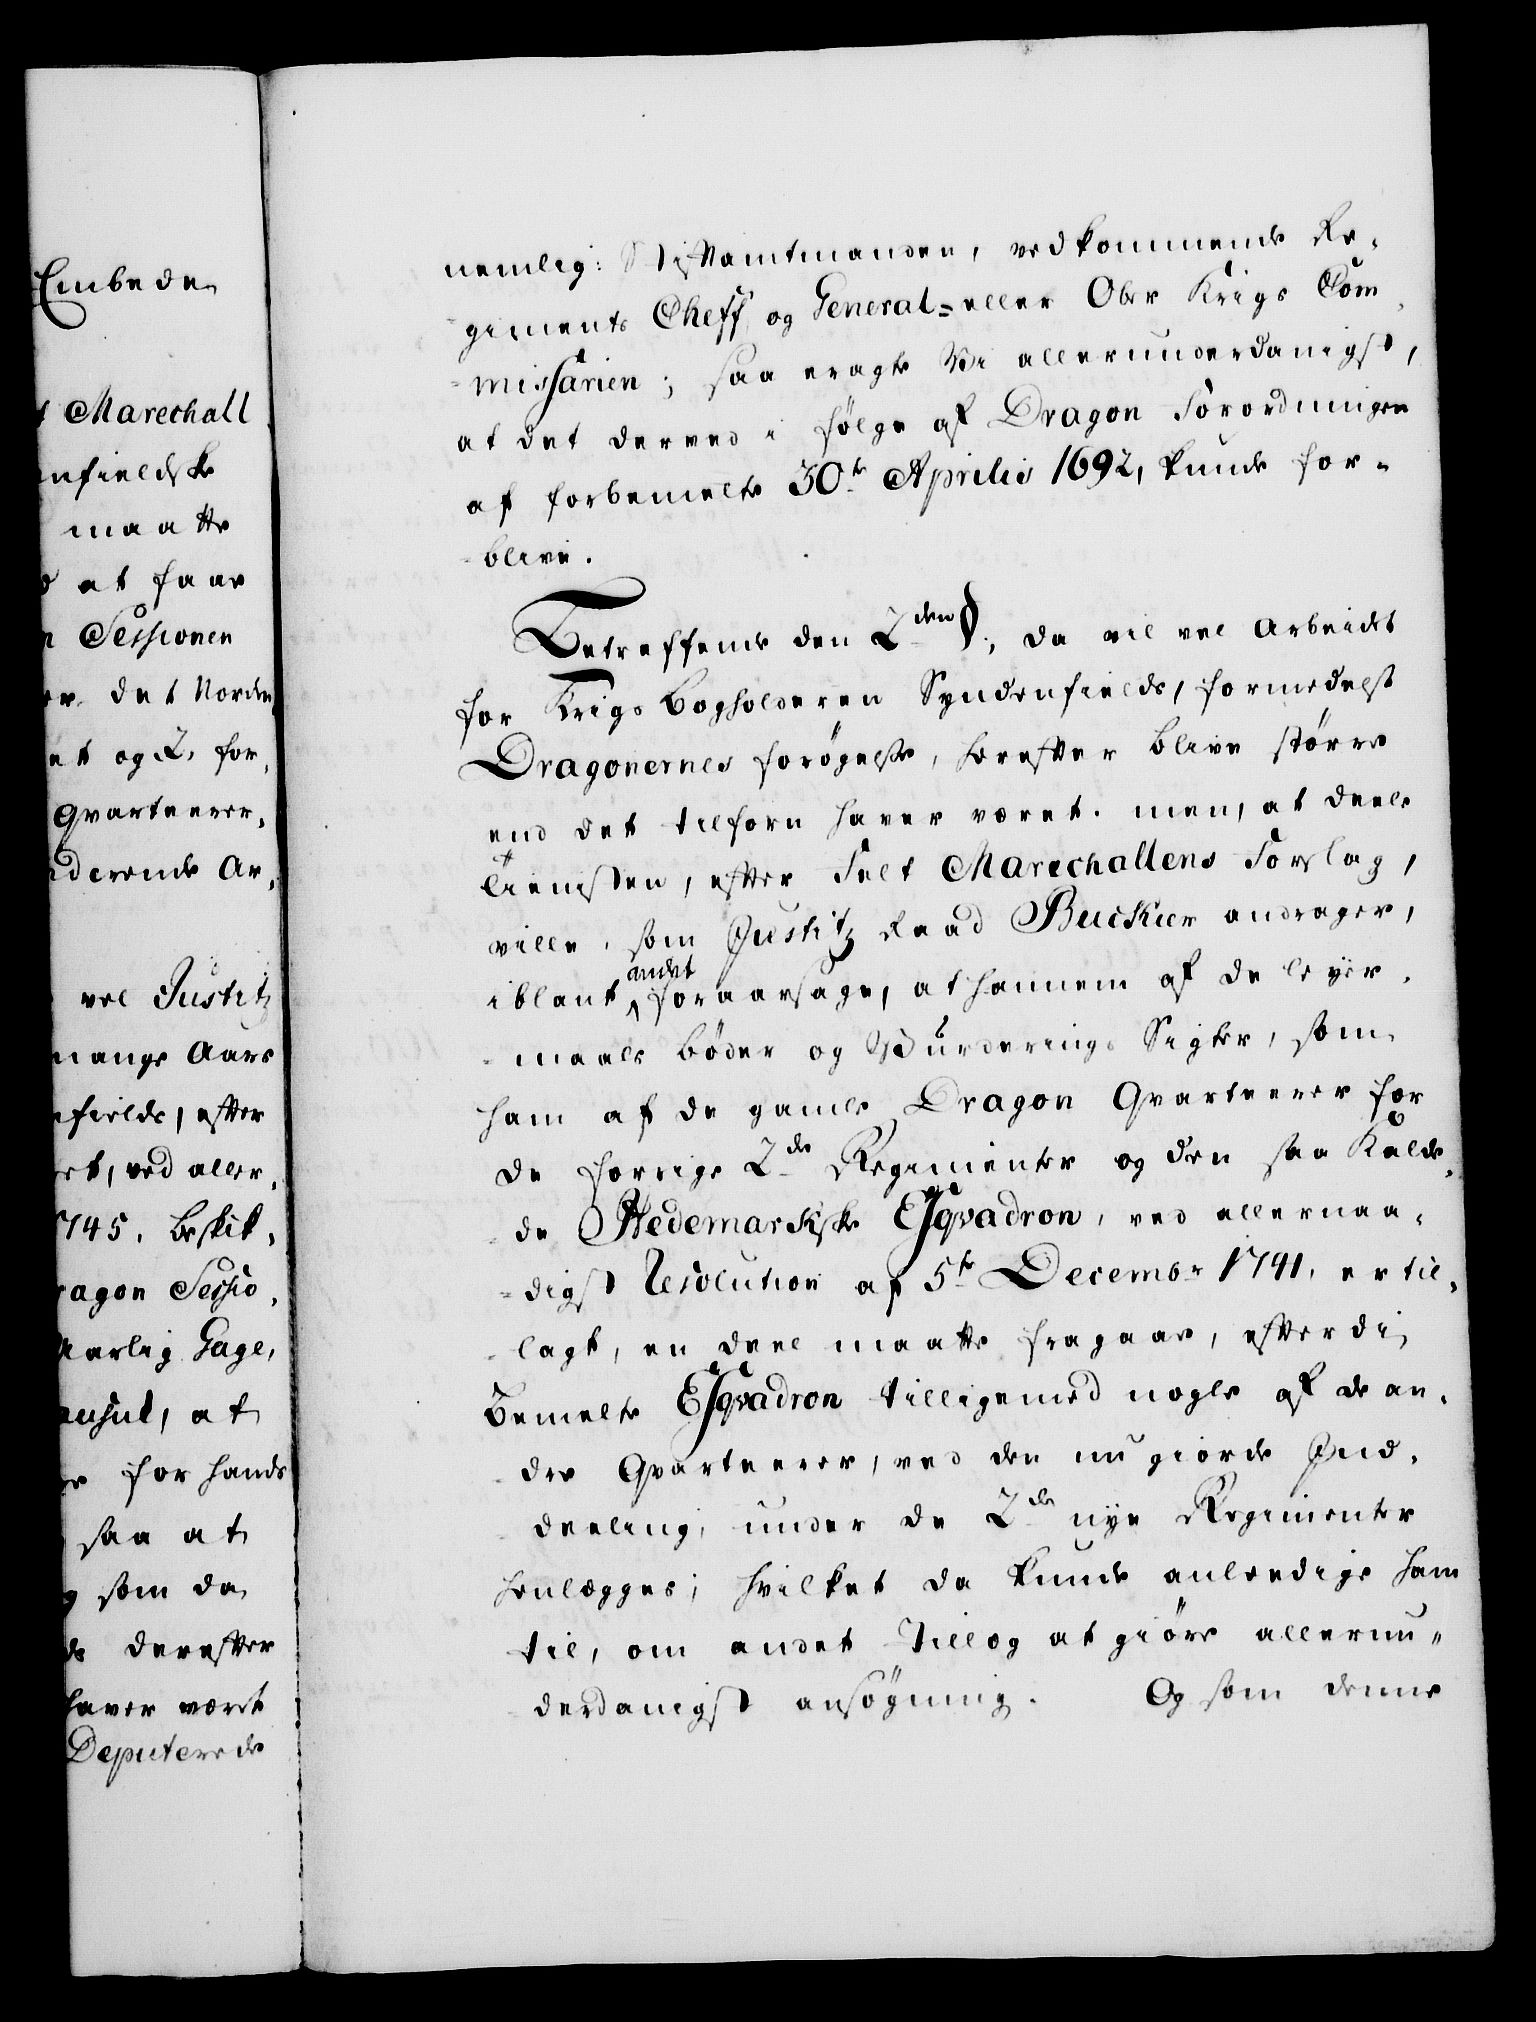 Embede
Marechall
nfieldske
maatte
at faae
Sessionen
det Norden
et og 2, for,
Qvarteerer,
derende Ar,
vel Justitz
mange Aars
fields, efter
ved aller,
1745, Beskik,
ragon Sessio,
Aarlig Gage,
at
for haands
saa at
som da
derefter
haver været
Deputerede
nemlig: Stiftamtmanden, vedkommende Re-
giments Cheff, og General= eller Ober Krigs Com
missarien; saa eragte Vi allerunderdanigst,
at det derved i følge af Dragon Forordningen
af forbemelte 30te Aprilis 1692, kunde for-
blive.
Betreffende den 2den); da vil vel Arbeidet
for Krigs Bogholderen Syndenfields, formedelst
Dragonernes forøgelse, herefter blive større
end det tilforn haver været. men, at deele
tienisten, efter Felt Marechallens Forslag,
ville, som Justitz Raad Buckier andrager,
iblant andet foraarsage, at hannem af de leyer-
maals bøder og Vurderings Sigter, som
ham af de gamle Dragon Qvarteerer for
de forrige 2de Regimenter og den saa Kald-
de Hedemarkske Esqvadron, ved allernaa-
digst Resolution af 5te Decembr 1741, er til-
lagt, en deel maatte fragaae, efterdi
Bemelte Esqvadron tilligemed nogle af de an-
dre Qvarteerer, ved den nu giorde Ind-
deeling, under de 2de nye Regimenter
henlægges; hvilket da kunde anlendige ham
til, om andet Tillæg at giøre allerun-
derdanigst ansøgning. Og som denne